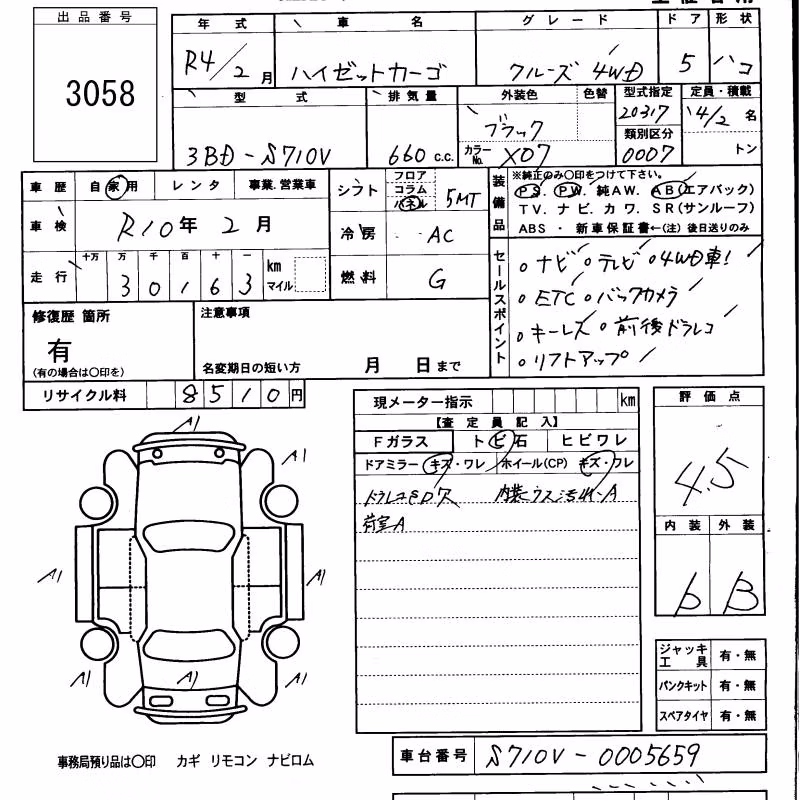 出品番号
3058
年式 車名 グレード ドア 形状
R4/2月 ハイゼットカーゴ クルーズ 4WD 5 ハコ
型式 排気量 外装色 色替 型式指定 定員・積載
3BD-S710V 660 c.c. ブラック 20317 4/2 名
カラーNo. X07 類別区分 0007 トン
車歴 自家用 レンタ 事業.営業車
車検 R10年 2月
走行 十万 万 千 百 十 一
3 0 1 6 3 km マイル
シフト フロア コラム パネル 5MT
冷房 AC
燃料 G
装備品
※純正のみ○印をつけて下さい。
PS. PW. 純AW. AB(エアバック)
TV. ナビ. カワ. SR(サンルーフ)
ABS ・ 新車保証書←(注)後日送りのみ
セールスポイント
○ナビ ○テレビ ○4WD車!
○ETC ○バックカメラ
○キーレス ○前後ドラレコ
○リフトアップ
修復歴 箇所
有
(有の場合は○印を)
注意事項
名変期日の短い方 月 日まで
リサイクル料 8510円
現メーター指示 km
【査定員記入】
Fガラス トビ石 ヒビワレ
ドアミラー キズ・ワレ ホイール(CP) キズ・ワレ
荷室A
評価点
4.5
内装 外装
b B
A1
A1
A1
A1
A1
A1
A1
ジャッキ工具 有・無
パンクキット 有・無
スペアタイヤ 有・無
事務局預り品は○印 カギ リモコン ナビロム
車台番号 S710V-0005659